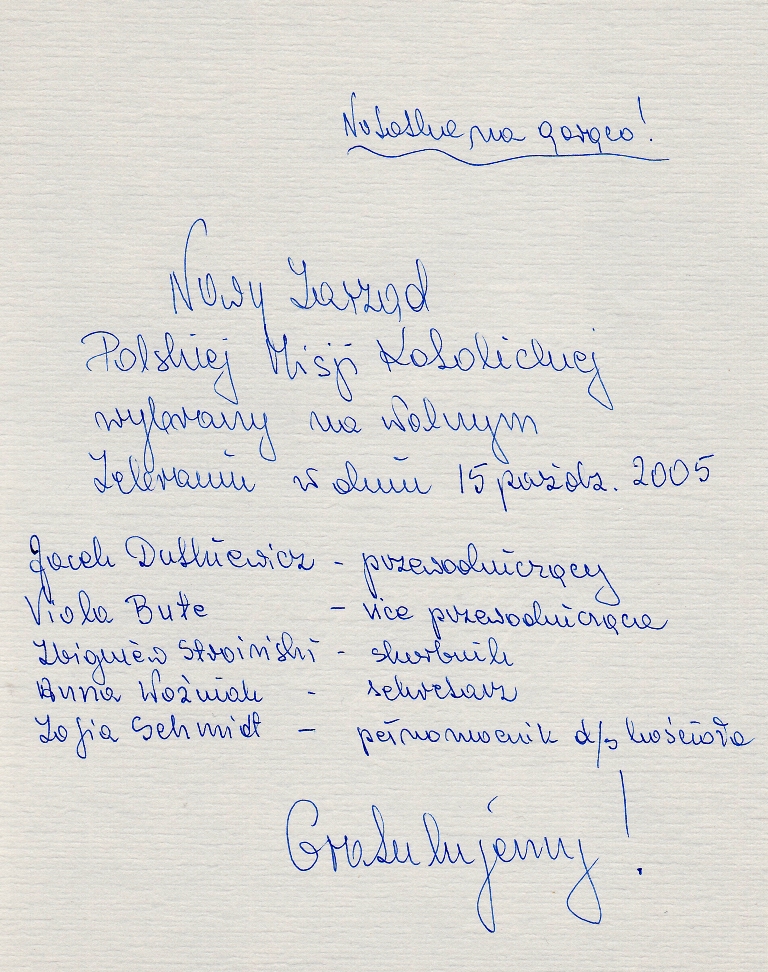 Notatka na gorąco!
Nowy Zarząd
Polskiej Misji Katolickiej
wybrany na Walnym
Zebraniu w dniu 15 paźdz. 2005
Jacek Dutkiewicz - przewodniczący
Viola Bute - vice przewodnicząca
Zbigniew Stroiński - skarbnik
Anna Woźniak - sekretarz
Zofia Schmidt - pełnomocnik d/s kościoła
Gratulujemy!